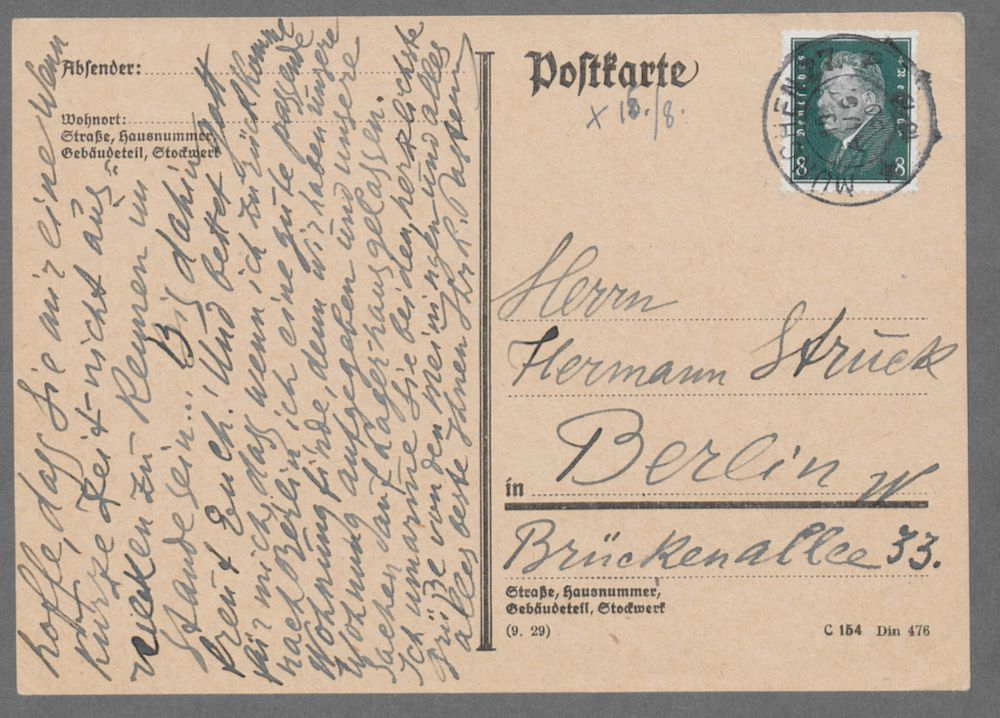 Absender:
Wohnort:
Straße, Hausnummer,
Gebäudeteil, Stockwerk
hoffe, dass Sie mir eine wenn
kurze Zeit - nicht aus-
weichen zu können im
Stande sein... Bis dahin
freut Euch! Und betet Gott
für mich, dass wenn ich zurückkomme
nach Berlin ich eine gute passende
Wohnung finde, denn wir haben unsere
Wohnung aufgegeben und unsere
Sachen auf Lagerhaus gelassen.
Ich umarme Sie beiden, herzlichste
Grüße von den Meiningen und alles
alles beste Ihnen Ihr L. Pasternak
Postkarte
x 15./8.
MÜNCHEN
Deutsches Reich
8 8
Herrn
Hermann Struck
in Berlin W
Brückenallee 33.
Straße, Hausnummer,
Gebäudeteil, Stockwerk
(9. 29)
C 154 Din 476